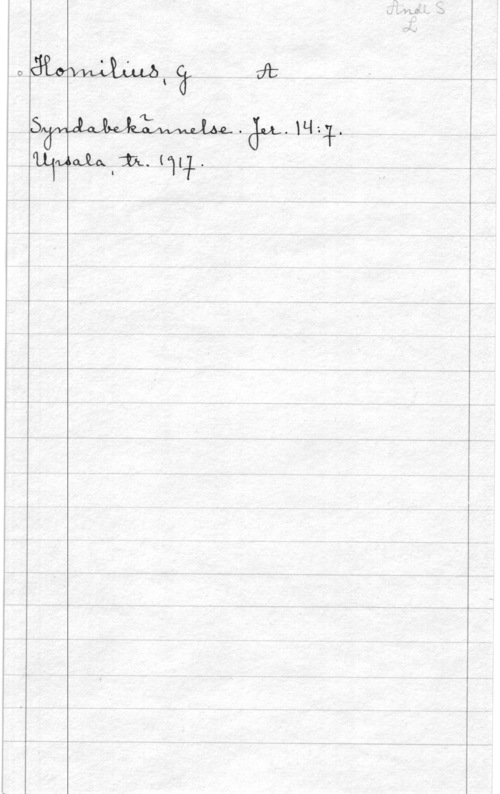 Andl S
L
Homilius, G A
Syndabekännelse. Jer. 14:7.
Upsala, tr. 1917.